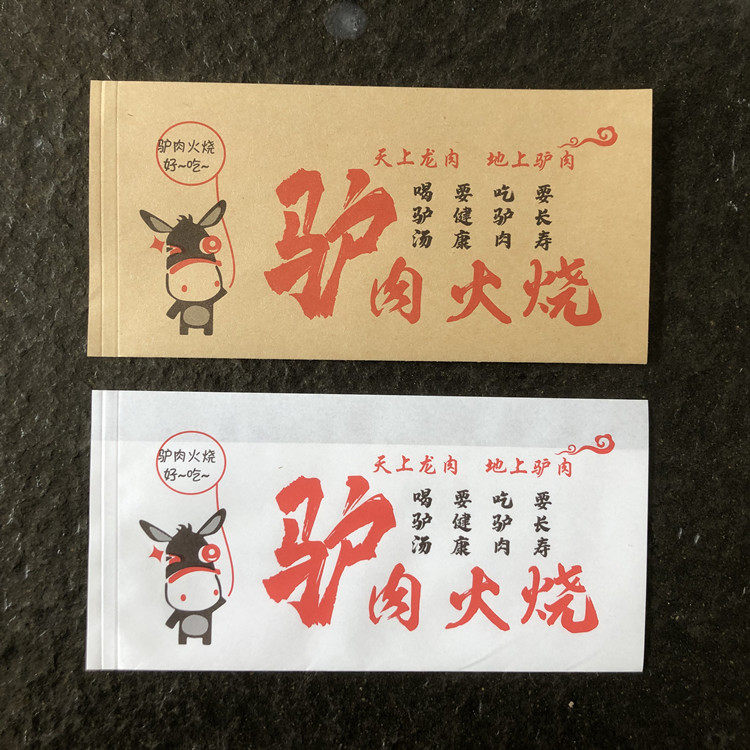 驴肉火烧
好~吃~
天上龙肉 地上驴肉
要长寿
吃驴肉
要健康
喝驴汤
驴肉火烧
驴肉火烧
好~吃~
天上龙肉 地上驴肉
要长寿
吃驴肉
要健康
喝驴汤
驴肉火烧